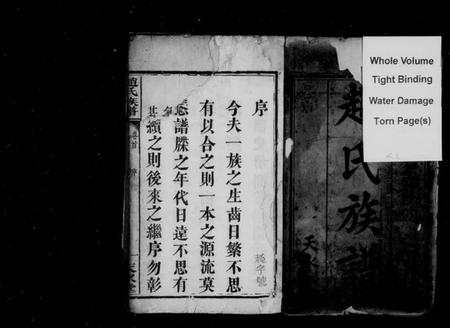 Whole Volume
Tight Binding
Water Damage
Torn Page(s)
趙氏族譜
天水
序
今夫一族之生齒日繁不思
有以合之則一本之源流莫
悉譜牒之年代日遠不思有
以續之則後來之繼序勿彰
趙氏族譜
卷首
序